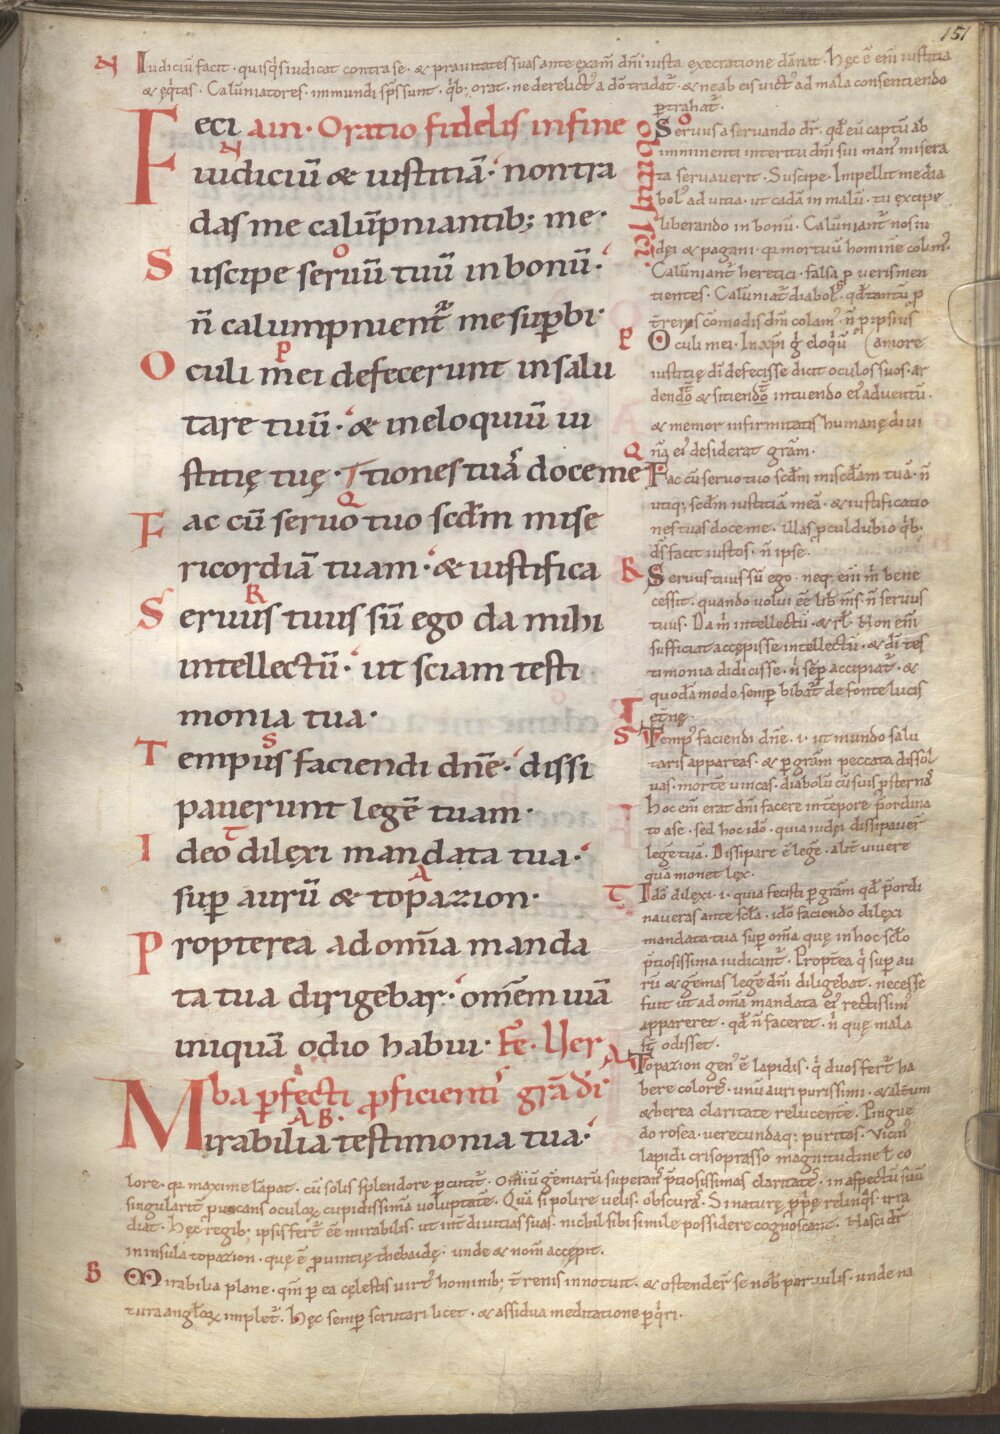 151
N Iudiciū facit · quisq̇s iudicat contra se · & prauitates suas ante exam̄ dn̄i iusta execratione dānat · hęc ē eni̅ iustitia
& ęq̇tas · Calūniatores · inmundi sp̄s sunt · q̇b; orat · ne derelict' a dō tradat̄ · & ne ab eis uict' ad mala consentiendo
ptrahat̄ ·
Feci ain · Oratio fidelis in fine
N
iudiciū & iustitiā · non tra
das me calūpniantib; me ·
O
Suscipe seruū tuū in bonū ·
n̄ calumpnient̄ me supbi ·
P
Oculi mei defecerunt in salu
tare tuū · & in eloquiū iu
stitię tuę · tiones tuās doce me
Q
Fac cū seruo tuo scdm̄ mise
ricordiā tuam · & iustifica
R
Seruus tuus sū ego da mihi
intellectū · ut sciam testi
monia tua ·
S
Tempus faciendi dn̄e · dissi
pauerunt legē tuam ·
T
Ideo dilęxi mandata tua ·
A
sup aurū & topazion ·
Propterea ad om̄ia manda
ta tua dirigebar · om̄em uiā
iniquā odio habui · Fe · Uer
ba pfecti pficienti grā dī
A B ·
Mirabilia testimonia tua ·
O Seruus a seruando dr̄ · qd̄ eū captū ab
imminenti interitu dn̄i sui man' misera
ta seruauerit · Suscipe · Impellit me dia
bol' ad uitia · ut cadā in malū · tu ęxcipe
liberando in bonū · Calūniant̄ nos iu
dęi & pagani · qr mortuū homine colim' ·
Calūniant̄ heretici · falsa p ueris men
tientes · Calūniat̄ diabol' · qd̄ tantū p
t̄renis cōmodis dm̄ colam' · n̄ p ipsius
P Oculi mei · In ap̄i ġ eloq̇ū (amore
iustitię dī defecisse dicit oculos suos · ar
dendo & sitiendo intuendo ei' aduentū ·
& memor infirmitatis humanę diui
nā ei' desiderat grām ·
Q Fac cū seruo tuo scdm̄ miscd̄am tuā · n̄
utiq; scdm̄ iustitiā meā · & iustificatio
nes tuas doce me · illas pculdubio q̇b ·
ds̄ facit iustos · n̄ ipse ·
R Seruus tuus sū ego · neq; eni̅ m̄ bene
cessit · quando uolui eē lib̄ m̄s · n̄ seruus
tuus · Da m̄ intellectū · & rl̄ · Non eni̅
sufficiat accępisse intellectū · & dī tes
timonia didicisse · n̄ sēp accipiat̄ · &
quodāmodo semp bibat̄ de fonte lucis
et̄nę ·
S Temp' faciendi dn̄e · i · ut mundo salu
taris appareas · & p grām peccata dissol
uas · mortē uincas · diabolū cū suis psternas
hoc eni̅ erat dn̄i facere in tēpore p̄ordina
to a se · sed hoc idō · quia iudęi dissipauer̄
legē tuā · Dissipare ē legē · alit̄ uiuere
quā monet lęx ·
T Idō dilęxi · i · quia fecisti p grām qd̄ p̄ordi
naueras ante scl̄a · idō faciendo dilęxi
mandata tua sup om̄a quę in hoc scl̄o
p̄tiosissima iudicant̄ · Propt̄ea q̇ sup au
rū & gēmas legē dn̄i diligebat · necesse
fuit ut ad om̄a mandata ei' rectissim'
appareret · qd̄ n̄ faceret · n̄ quę mala
st̄ odisset ·
A Topazion gen' ē lapidis · q̇ duos fert̄ ha
bere colores · unū auri purissimi · & alt̄um
ętherea claritate relucente · Pingue
do rosea · uerecundaq; puritas · Vicin'
lapidi crisoprasso magnitudine l̄ co
lore · qr maxime lāpat · cū solis splendore pcutit̄ · Omiū gēmarū superans p̄tiosissimas claritates · in aspectū suū
singularit̄ puocans oculox cupidissima uoluptate · Quā si polire uelis · obscuras · Si naturę pp̄ę relinq̇s · irra
diat · hęc regib; ipsis fert̄ eē mirabilis · ut int̄ diuitias suas · nichil sibi simile possidere cognoscant · Nasci dr̄
in insula topazion · quę ē puintię thebaidę · unde & nom̄ accępit ·
B Mirabilia plane · qm̄ p ea cęlestis uirt' hominib; t̄renis innotuit · & ostender̄ se nob̄ paruulis · unde na
tura angl̄ox implet̄ · hęc semp scrutari licet · & assidua meditatione pq̇ri ·